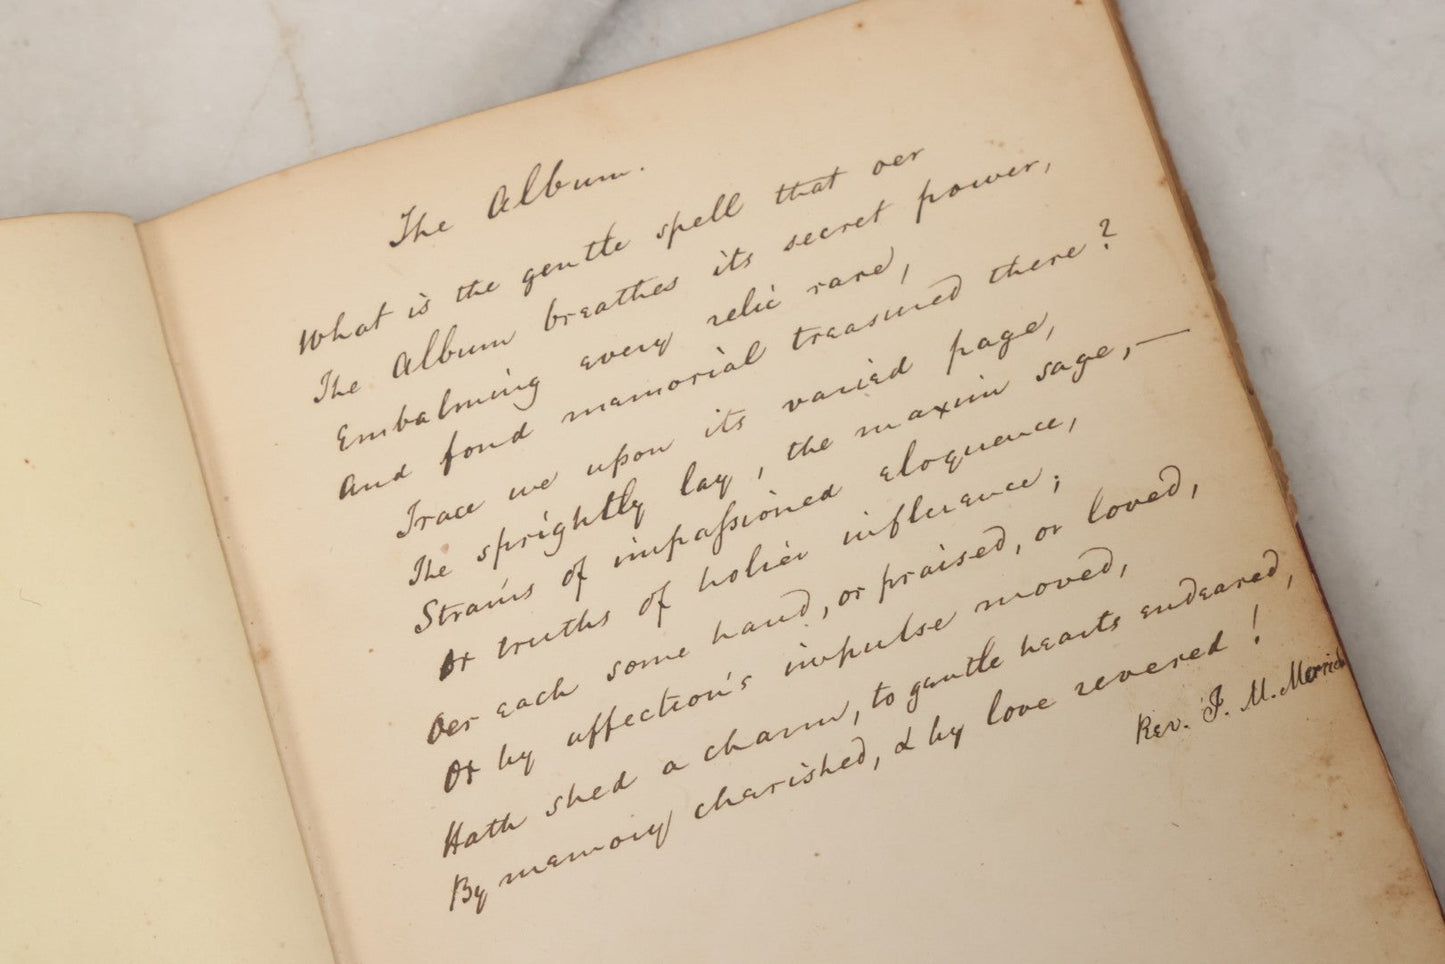 The Album.
What is the gentle spell that oer
The Album breathes its secret power,
Embalming every relic rare,
And fond memorial treasured there?
Trace we upon its varied page,
The sprightly lay, the maxim sage,—
Strains of impassioned eloquence,
Or truths of holier influence;
Oer each some hand, or praised, or loved,
Or by affection's impulse moved,
Hath shed a charm, to gentle hearts endeared,
By memory cherished, & by love revered!
Rev. J. M. Merrick